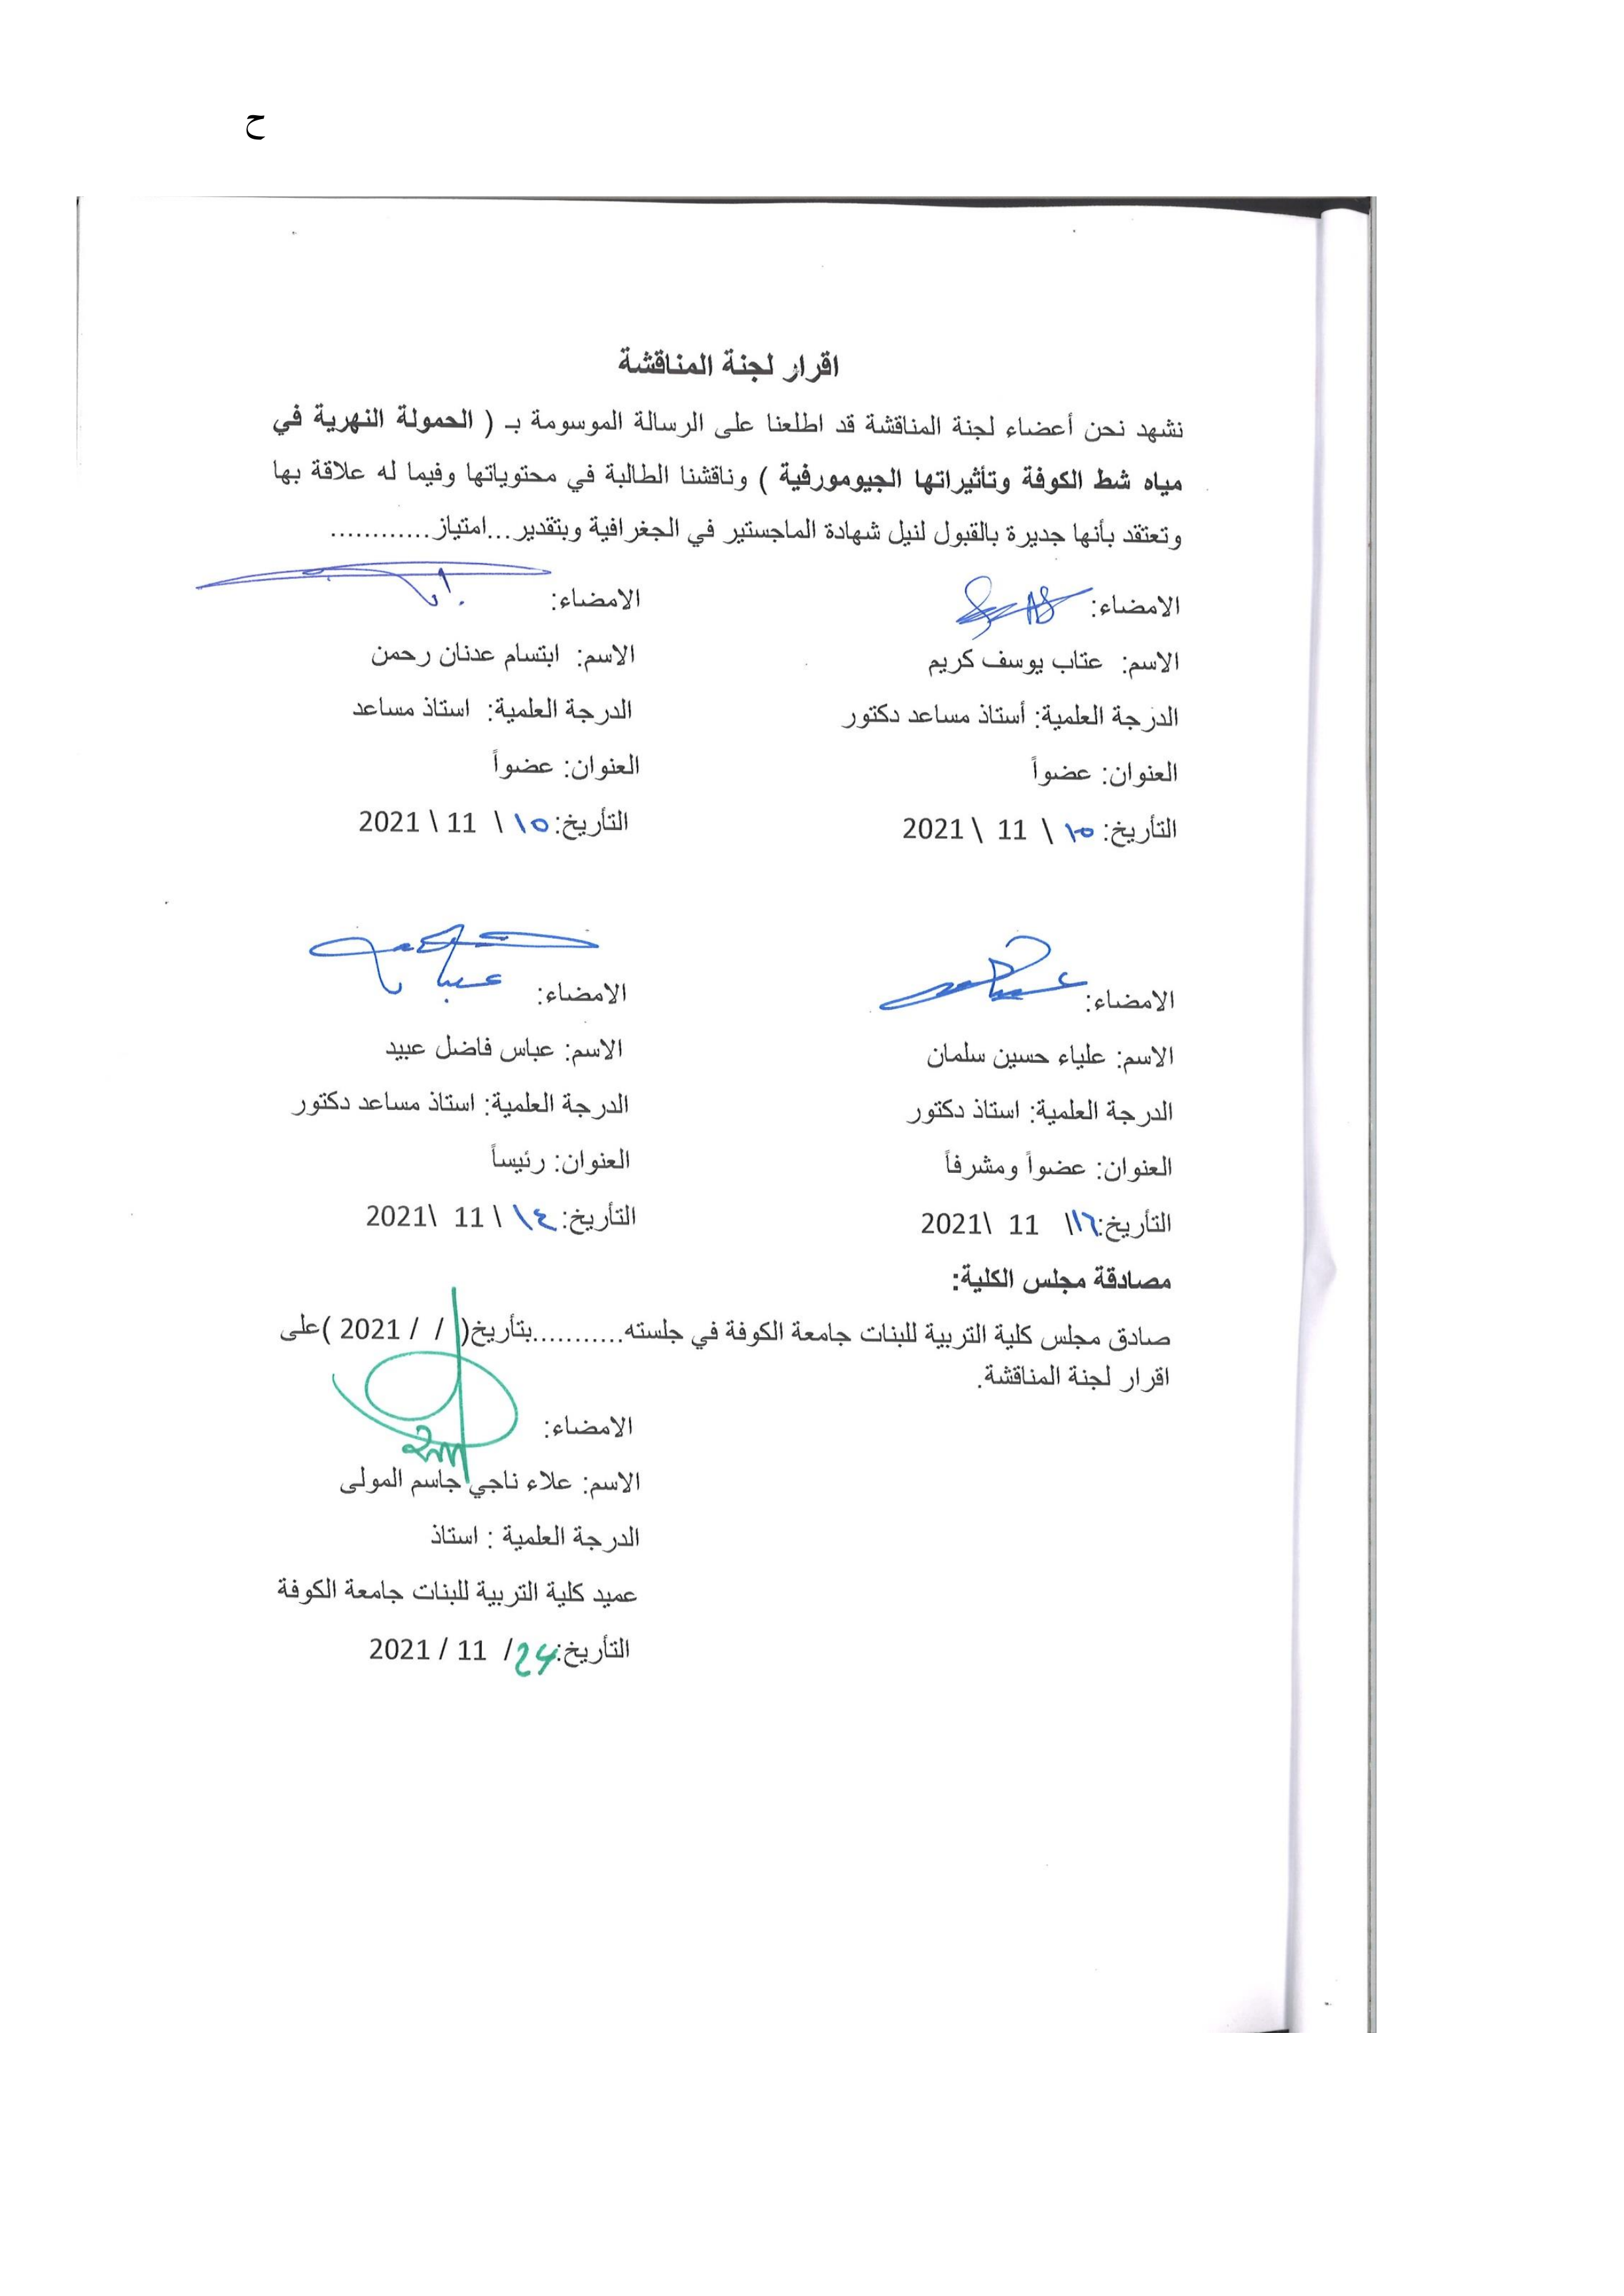 ح
اقرار لجنة المناقشة
نشهد نحن أعضاء لجنة المناقشة قد اطلعنا على الرسالة الموسومة بـ ( الحمولة النهرية في
مياه شط الكوفة وتأثيراتها الجيومورفية ) وناقشنا الطالبة في محتوياتها وفيما له علاقة بها
وتعتقد بأنها جديرة بالقبول لنيل شهادة الماجستير في الجغرافية وبتقدير...امتياز............
الامضاء:
الاسم: عتاب يوسف كريم
الدرجة العلمية: أستاذ مساعد دكتور
العنوان: عضواً
التأريخ: ١٥ \ 11 \ 2021
الامضاء:
الاسم: ابتسام عدنان رحمن
الدرجة العلمية: استاذ مساعد
العنوان: عضواً
التأريخ: ١٥ \ 11 \ 2021
الامضاء:
الاسم: علياء حسين سلمان
الدرجة العلمية: استاذ دكتور
العنوان: عضواً ومشرفاً
التأريخ: ١٦ \ 11 \2021
الامضاء:
الاسم: عباس فاضل عبيد
الدرجة العلمية: استاذ مساعد دكتور
العنوان: رئيساً
التأريخ: ١٤ \ 11 \2021
مصادقة مجلس الكلية:
صادق مجلس كلية التربية للبنات جامعة الكوفة في جلسته...........بتأريخ( / / 2021 )على
اقرار لجنة المناقشة.
الامضاء:
الاسم: علاء ناجي جاسم المولى
الدرجة العلمية : استاذ
عميد كلية التربية للبنات جامعة الكوفة
التأريخ: 24 / 11 / 2021